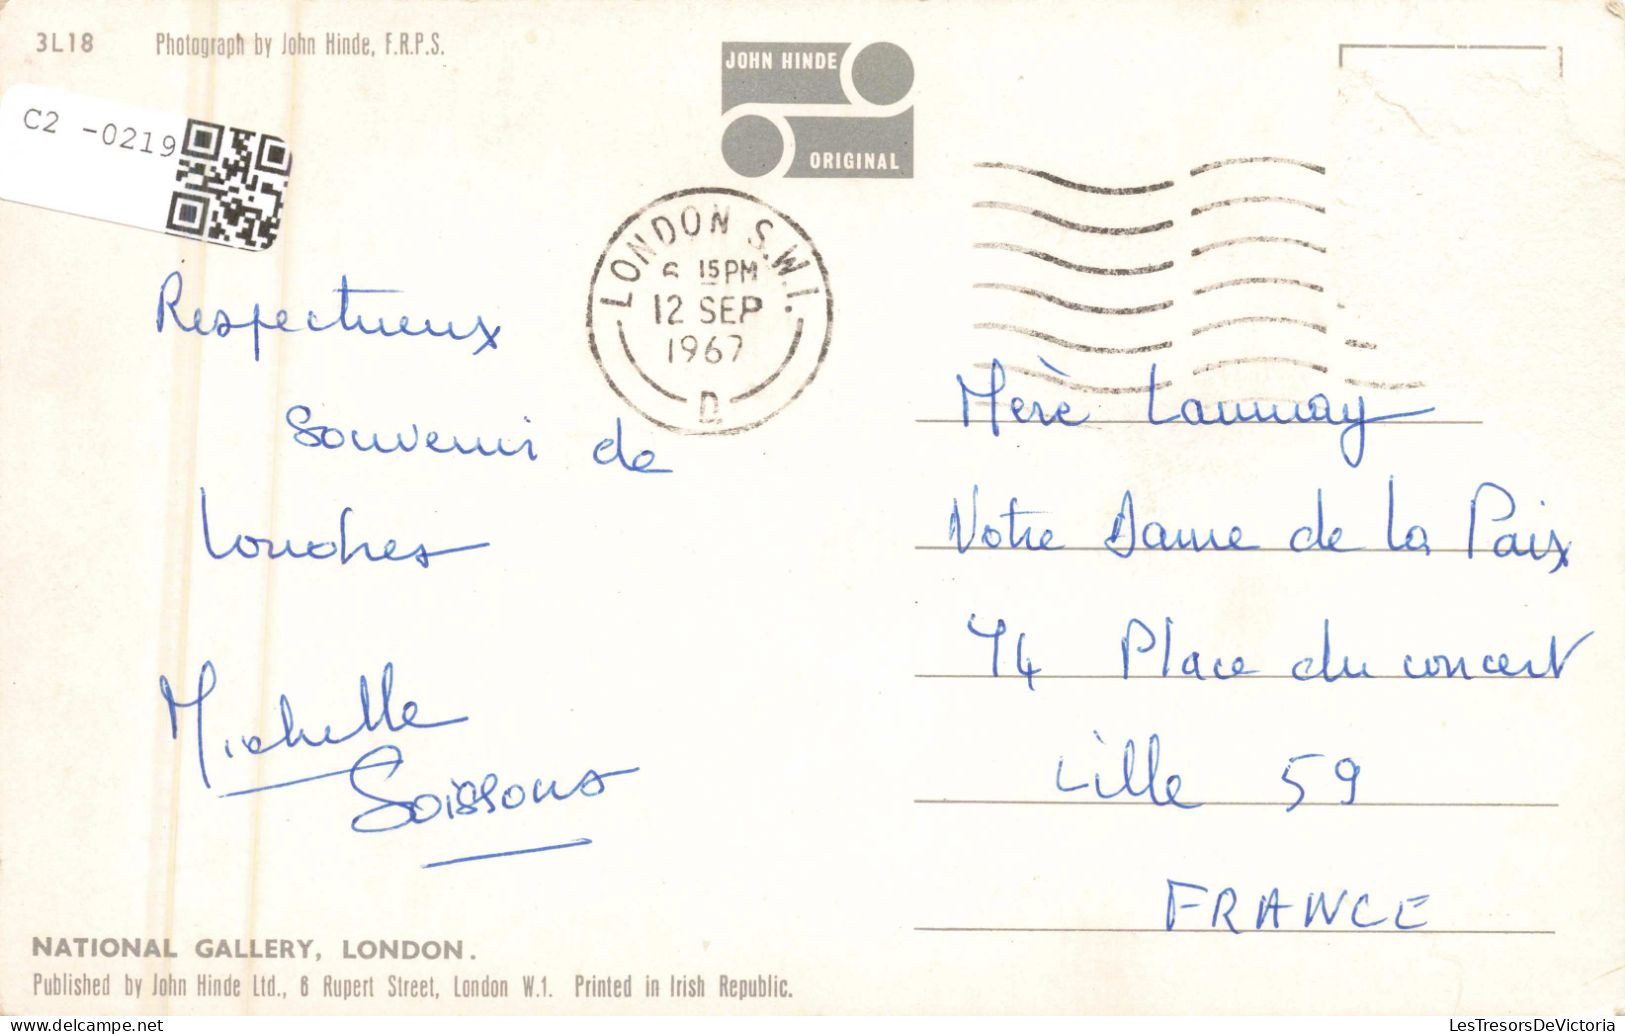 3L18 Photograph by John Hinde, F.R.P.S.
JOHN HINDE
ORIGINAL
C2 -0219
LONDON S.W.1.
6 15PM
12 SEP
1967
D
Respectueux
Souvenir de
Londres
Michelle
Soissons
Mère Launay
Notre Dame de la Paix
14 Place du concert
Lille 59
FRANCE
NATIONAL GALLERY, LONDON.
Published by John Hinde Ltd., 6 Rupert Street, London W.1. Printed in Irish Republic.
delcampe.net
LesTresorsDeVictoria